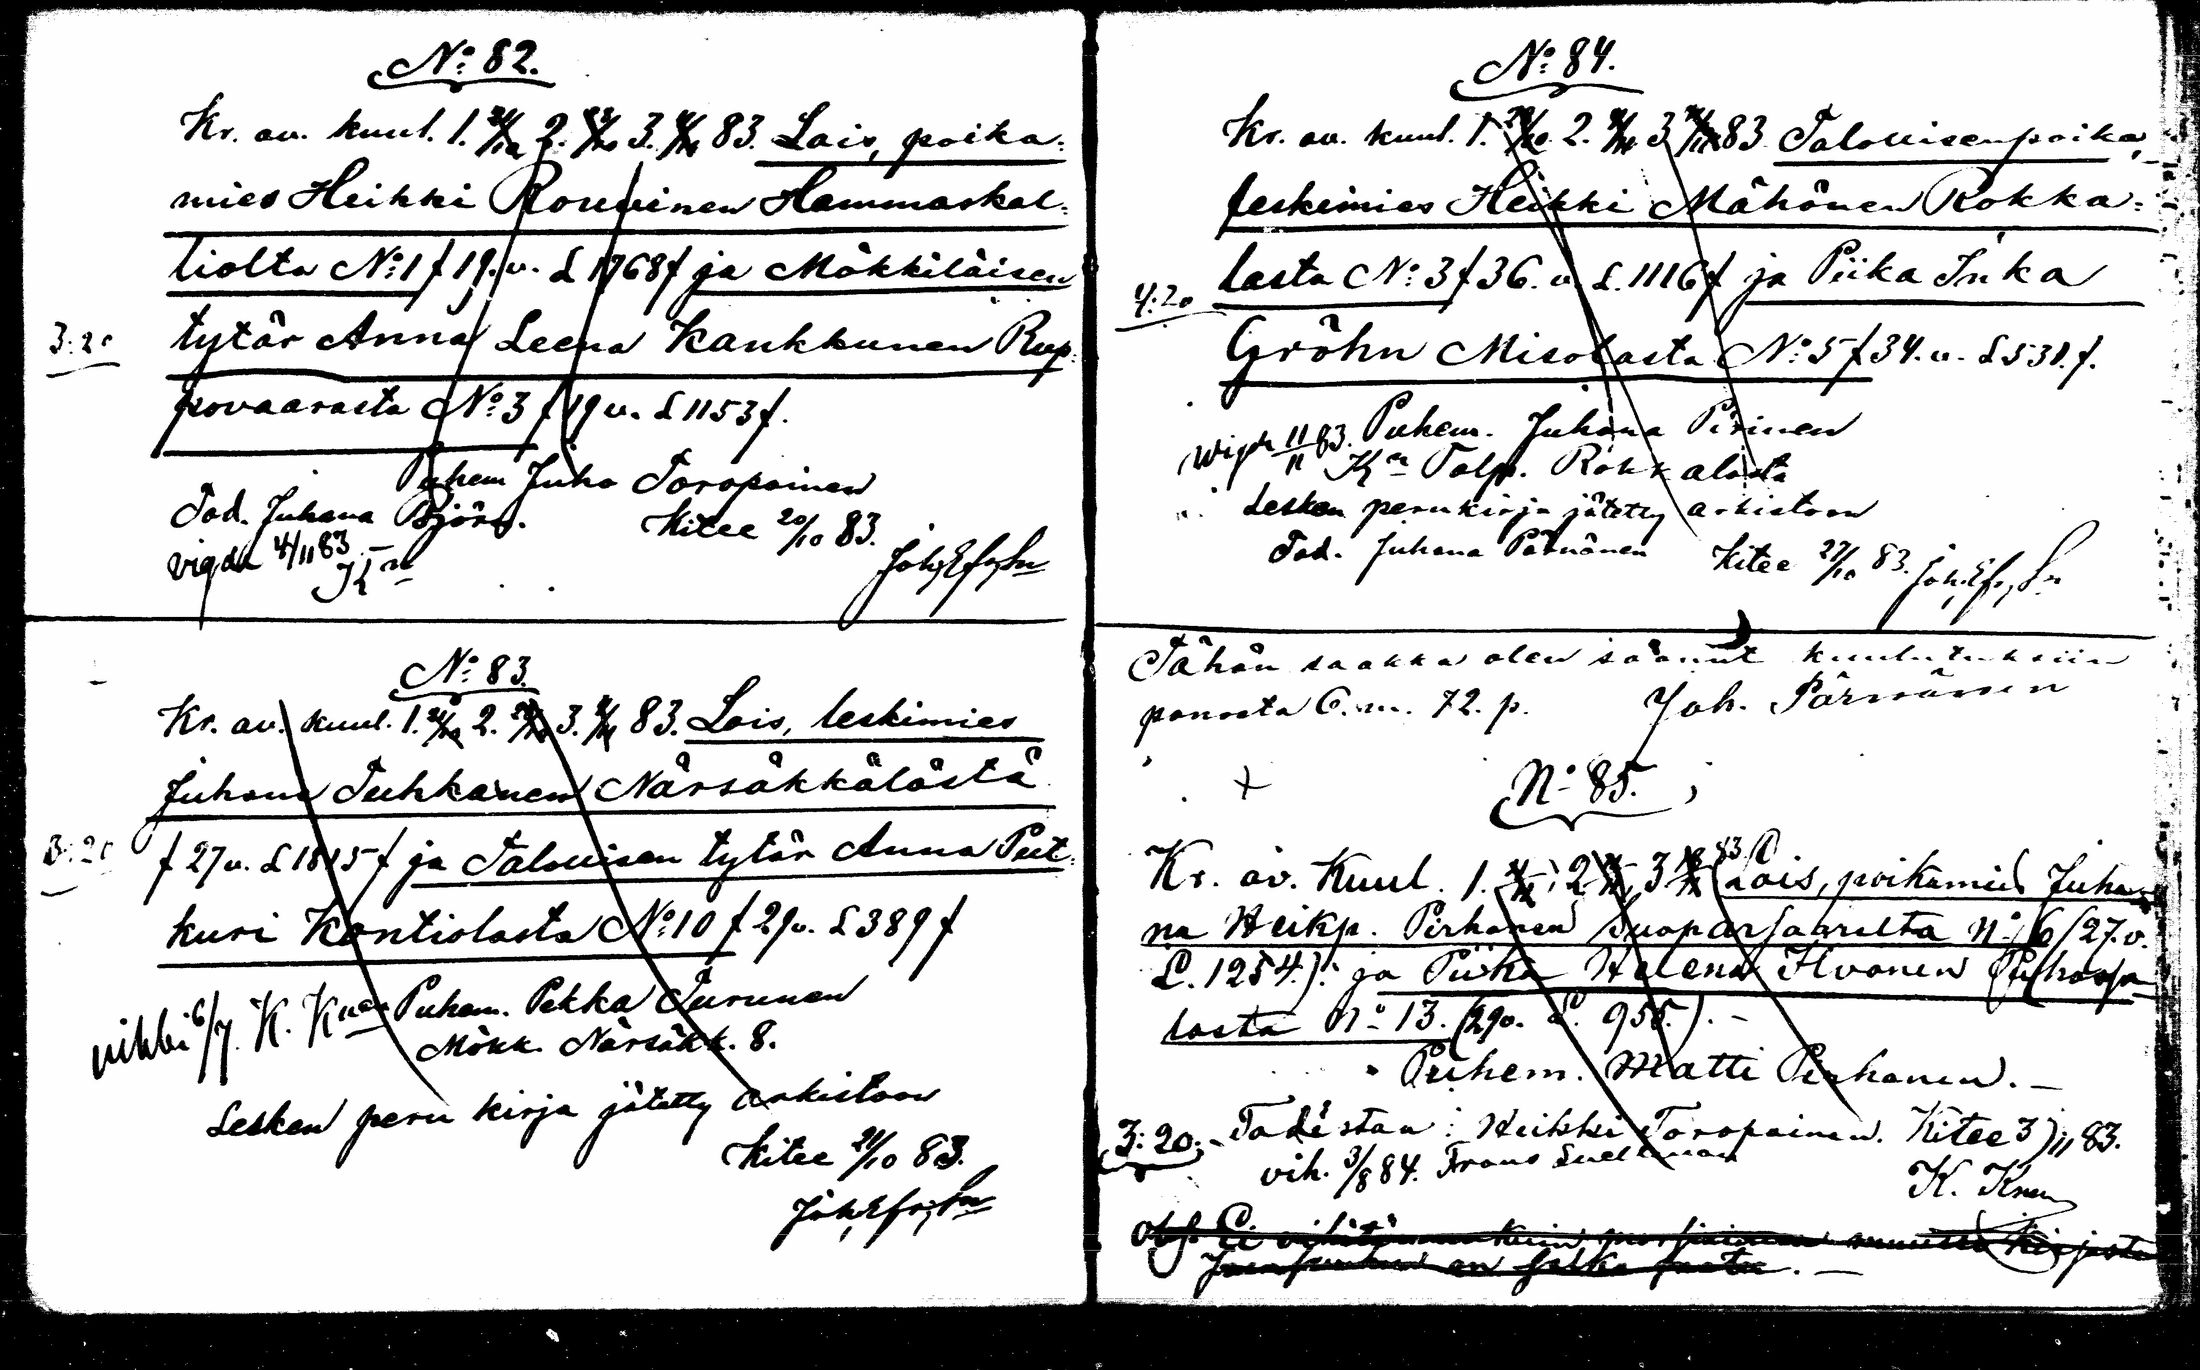 No: 82.
Kr. av. kuul. 1. 21/10 2. 28/10 3. 4/11 83. Lois, poika-
mies Heikki Rouvinen Hammaskal-
liolta No: 1 f 19. v. L 1768 f ja Mökkiläisen
3:20 tytär Anna Leena Kankkunen Rup-
povaarasta No: 3 f 19 v. L 1153 f.
Puhem Juho Toropainen
Tod. Juhana Björn. Kitee 20/10 83.
vigda 4/11 83
No: 83.
Kr. av. kuul. 1. 21/10 2. 28/10 3. 4/11 83. Lois, leskimies
Juhana Tuhkanen Närsäkkälästä
3:20 f 27 v. L 1815 f ja Talollisen tytär Anna Put-
kuri Kontiolasta No: 10 f 29 v. L 389 f
Puhem. Pekka Turunen
vihki 6/7. K. K
Mökk. Närsäkk. 8.
Lesken peru kirja jätetty arkistoon
Kitee 21/10 83.
No: 84.
Kr. av. kuul. 1. 28/10 2. 4/11 3 11/11 83 Talollisenpoika,
leskimies Heikki Mähönen Rokka-
4:20 lasta No: 3 f 36. v. L. 1116 f ja Piika Inka
Gröhn Misolasta No: 5 f 34. v. L 531. f.
Puhem. Juhana Pirinen
wigda 11/11 83. Talp. Rokkalasta
Lesken perukirja jätetty arkistoon
Tod. Juhana Pärnänen Kitee 27/10 83.
Tähän saakka olen saanut kuulutuksiin
panosta 6. m. 72. p. Joh. Pärnänen
No 85.
Kr. av. Kuul. 1. 4/11, 2 11/11, 3 18/11 83 (Lois, poikamies Juha-
na Heikp. Pirhonen Suoparsaarelta No 6 (27. v.
L. 1254.). ja Piika Helena Ilvonen Puhossa-
lasta No 13. (29v. L. 955.). —
Puhem. Matti Pirhonen. —
3:20. Todistaa: Heikki Toropainen. Kitee 3/11 83.
vih. 3/8 84. Frans Snellman
K. K